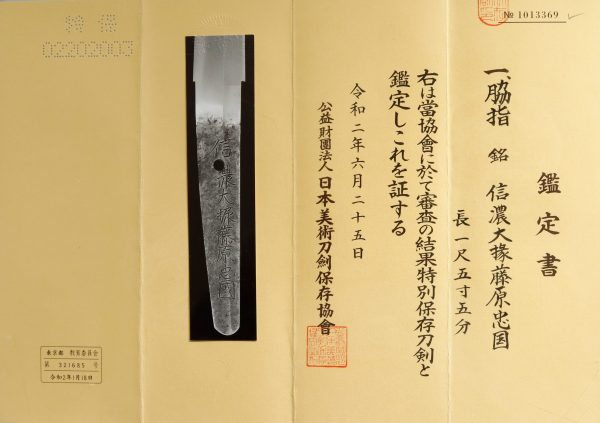 № 1013369
鑑定書
一、脇指 銘 信濃大掾藤原忠国
長一尺五寸五分
右は當協會に於て審査の結果特別保存刀剣と
鑑定しこれを証する
令和二年六月二十五日
公益財團法人 日本美術刀劍保存協會
信濃大掾藤原忠国
特保
02202003
東京都 教育委員会
第 321685 号
令和2年1月16日